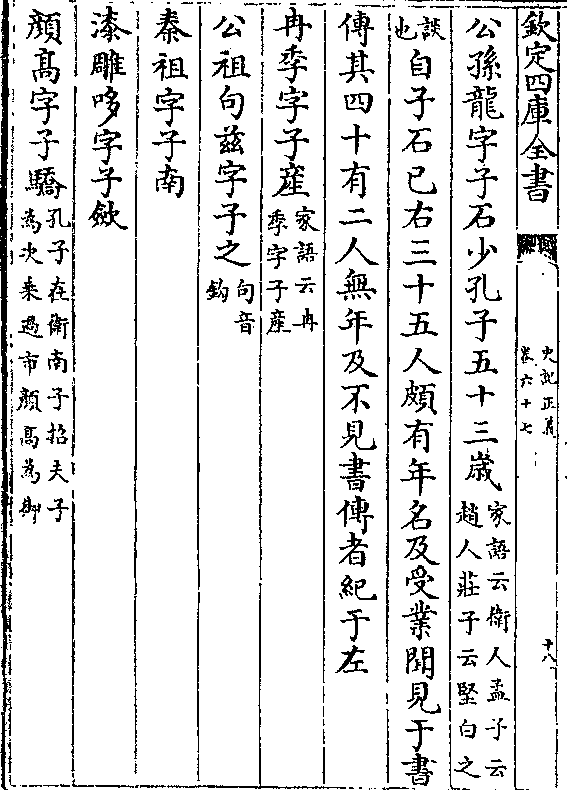 欽定四庫全書
史記正義
卷六十七
十八
公孫龍字子石少孔子五十三歲家語云衛人孟子云趙人莊子云堅白之
談也自子石已右三十五人頗有年名及受業聞見于書
傳其四十有二人無年及不見書傳者紀于左
冉季字子產家語云冉季字子產
公祖句茲字子之句音鈎
秦祖字子南
漆雕哆字子斂
顏高字子驕孔子在衛南子招夫子為次乗過市顏高為御